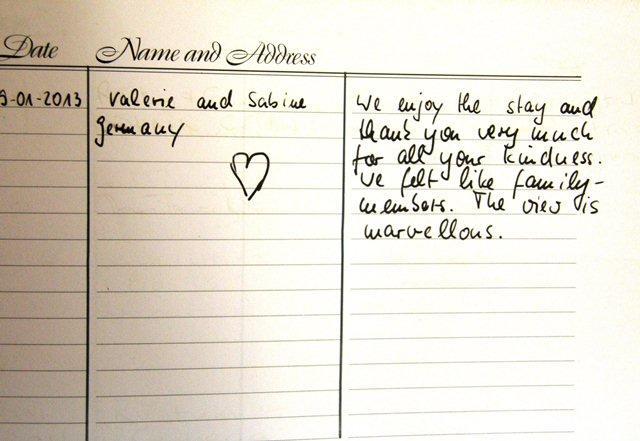 Date Name and Address
9-01-2013 Valerie and Sabine
Germany
We enjoy the stay and
thank you very much
for all your kindness.
We felt like family-
members. The view is
marvellous.